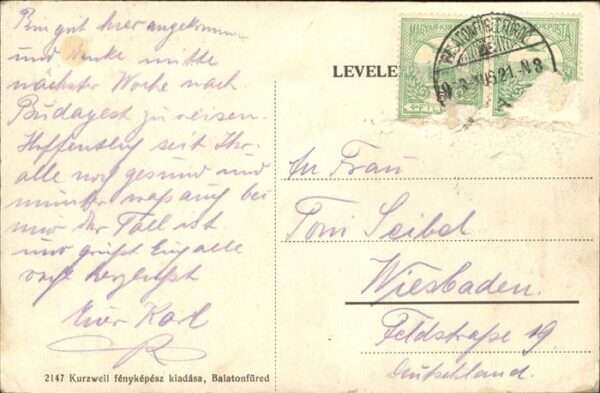 Bin gut hier angekommen
und denke mitte
nächster Woche nach
Budapest zu reisen.
Hoffentlich seit Ihr
alle noch gesund und
munter was auch bei
mir der Fall ist
und grüßt Euch alle
recht herzlichst
Euer Karl
2147 Kurzweil fényképész kiadása, Balatonfüred
LEVELE
MAGYAR KIR. POSTA
21
An Frau
Toni Seibel
Wiesbaden.
Feldstraße 19
Deutschland.